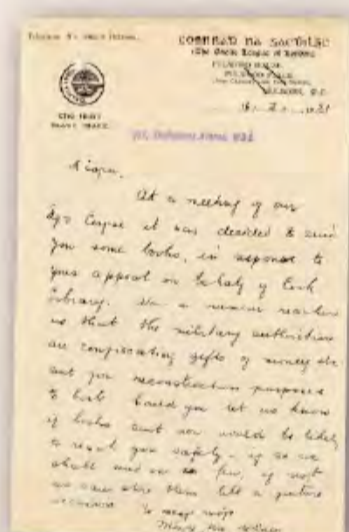 CONNRAD NA GAEDILGE
(The Gaelic League of London)
FULWOOD HOUSE
FULWOOD PLACE
HOLBORN, W.C.
16. 2. 1921
A cara,
At a meeting of our
Coiste it was decided to send
you some books, in response to
your appeal on behalf of Cork
Library. But a rumour reaches
us that the military authorities
are confiscating gifts of money etc
sent for reconstruction purposes
to Cork. Could you let us know
if books sent now would be likely
to reach you safely - if so we
shall send on a few, if not
we can store them till a quieter
Is mise